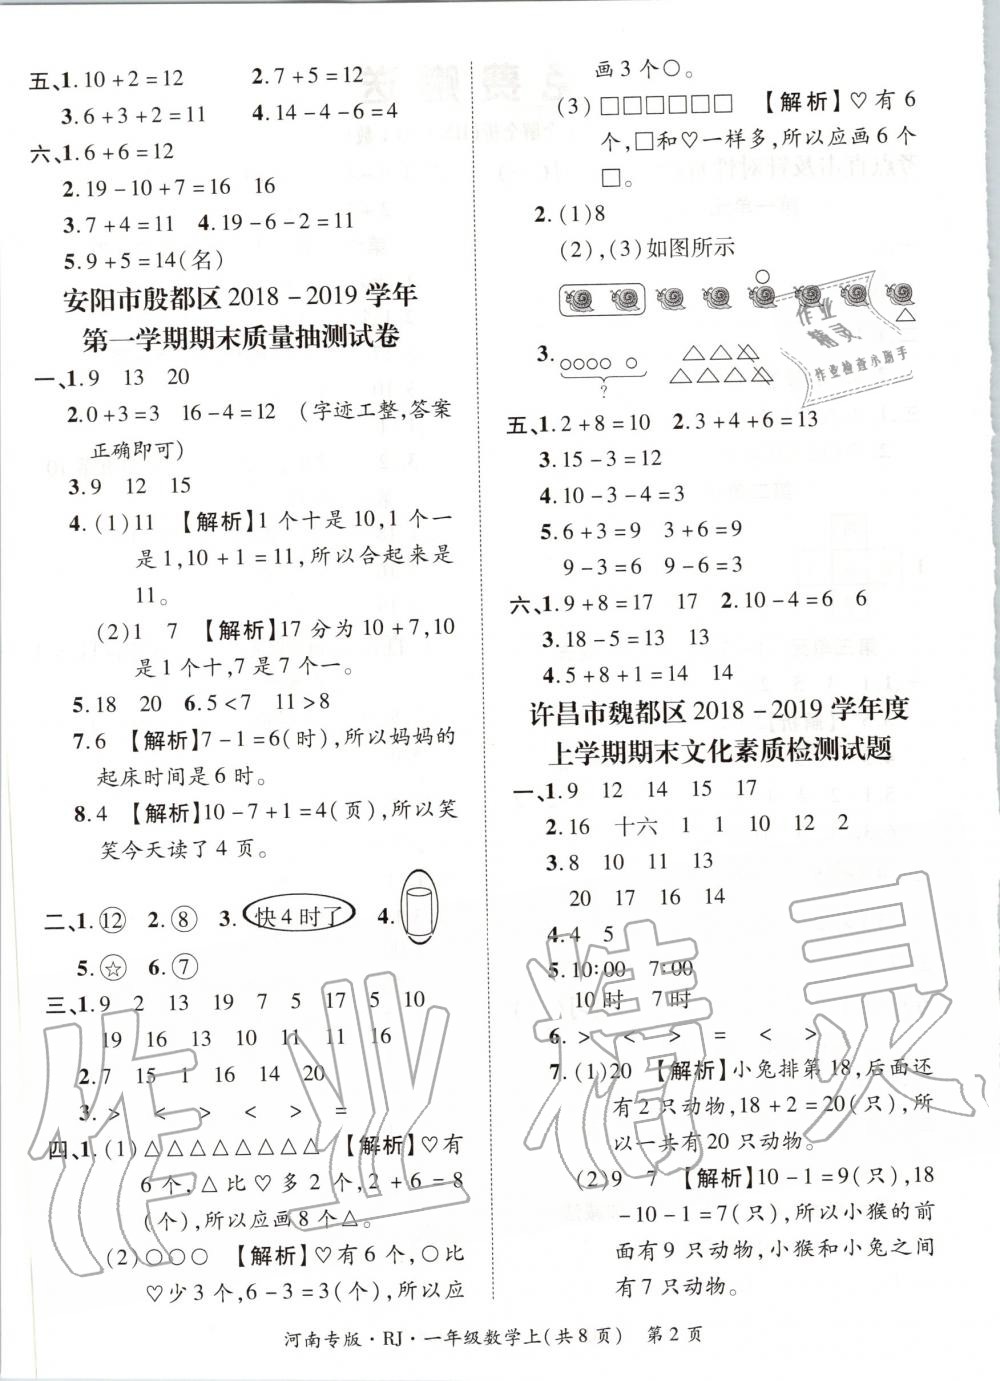 五、1.10+2=12 2.7+5=12
3.6+3+2=11 4.14-4-6=4
六、1.6+6=12
2.19-10+7=16 16
3.7+4=11 4.19-6-2=11
5.9+5=14(名)
安阳市殷都区2018-2019学年
第一学期期末质量抽测试卷
一、1.9 13 20
2.0+3=3 16-4=12 (字迹工整,答案
正确即可)
3.9 12 15
4.(1)11 【解析】1个十是10,1个一
是1,10+1=11,所以合起来是
11。
(2)1 7 【解析】17分为10+7,10
是1个十,7是7个一。
5.18 20 6.5<7 11>8
7.6 【解析】7-1=6(时),所以妈妈的
起床时间是6时。
8.4 【解析】10-7+1=4(页),所以笑
笑今天读了4页。
二、1.⑫ 2.⑧ 3.快4时了 4.
5.☆ 6.⑦
三、1.9 2 13 19 7 5 17 5 10
19 16 14 13 10 11 11 16
2.7 15 1 16 14 20
3.> > < < > =
四、1.(1)△△△△△△△△ 【解析】♡有
6个,△比♡多2个,2+6=8
(个),所以应画8个△。
(2)○○○ 【解析】♡有6个,○比
♡少3个,6-3=3(个),所以应
画3个○。
(3)□□□□□□ 【解析】♡有6
个,□和♡一样多,所以应画6个
□。
2.(1)8
(2),(3)如图所示
3.
?
五、1.2+8=10 2.3+4+6=13
3.15-3=12
4.10-3-4=3
5.6+3=9 3+6=9
9-3=6 9-6=3
六、1.9+8=17 17 2.10-4=6 6
3.18-5=13 13
4.5+8+1=14 14
许昌市魏都区2018-2019学年度
上学期期末文化素质检测试题
一、1.9 12 14 15 17
2.16 十六 1 1 10 12 2
3.8 10 11 13
20 17 16 14
4.4 5
5.10:00 7:00
10时 7时
6.> < > = < >
7.(1)20 【解析】小兔排第18,后面还
有2只动物,18+2=20(只),所
以一共有20只动物。
(2)9 7 【解析】10-1=9(只),18
-10-1=7(只),所以小猴的前
面有9只动物,小猴和小兔之间
有7只动物。
作业精灵
作业检查小助手
作业精灵
河南专版·RJ·一年级数学上(共8页) 第2页